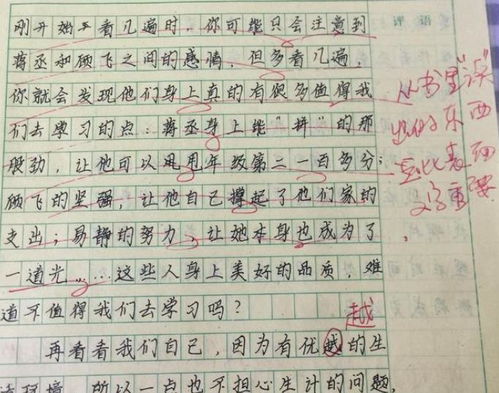 刚开始看几遍时，你可能只会注意到
蒋丞和顾飞之间的感情，但多看几遍，
你就会发现他们身上真的有很多值得我
们去学习的点：蒋丞身上能“拼”的那
股劲，让他可以甩年级第二一百多分；
顾飞的坚强，让他自己撑起了他们家的
支出；易静的努力，让她本身也成为了
一道光……这些人身上美好的品质，难
道不值得我们去学习吗？
越
再看看我们自己，因为有优越的生
活环境，所以一点也不担心生计的问题，
从书里“读”
出的东西
要比表面
文字重要